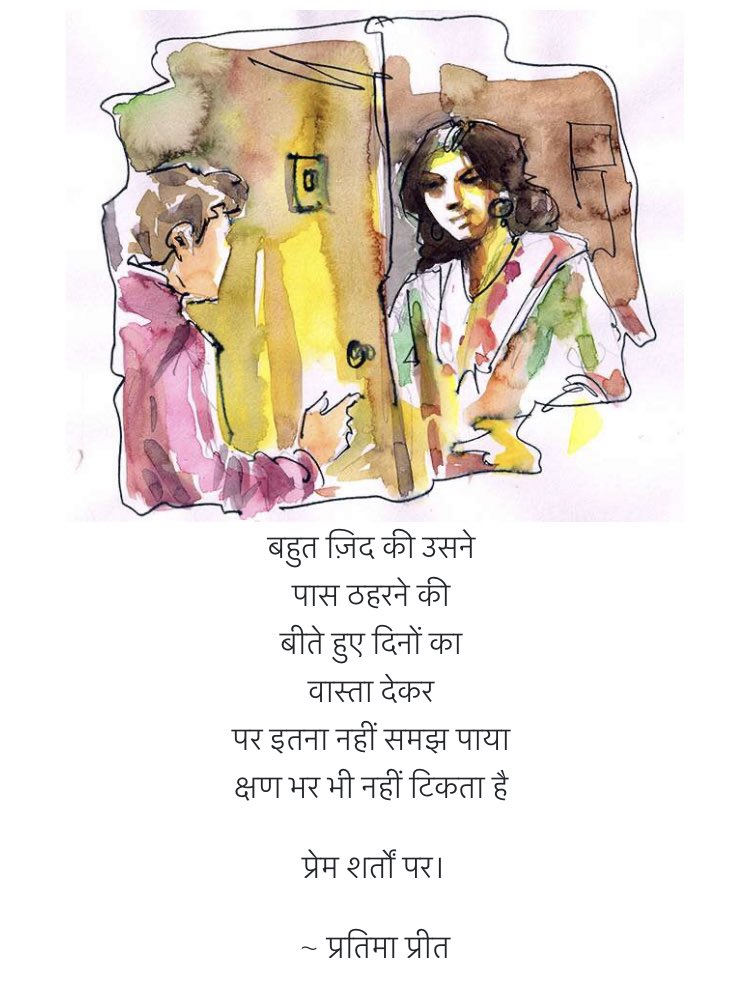 बहुत ज़िद की उसने
पास ठहरने की
बीते हुए दिनों का
वास्ता देकर
पर इतना नहीं समझ पाया
क्षण भर भी नहीं टिकता है
प्रेम शर्तों पर।
~ प्रतिमा प्रीत